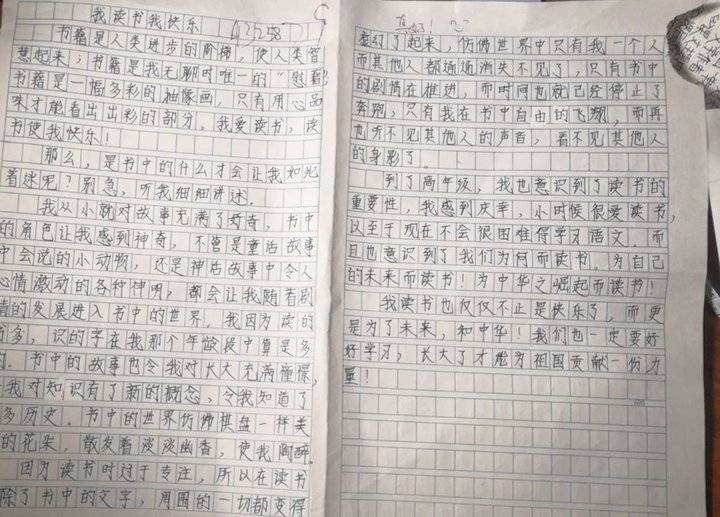 我读书我快乐
书籍是人类进步的阶梯,使人类智
慧起来;书籍是我无聊时唯一的“慰藉
书籍是一幅多彩的抽像画,只有用心品
味才能看出出彩的部分。我爱读书,读
书使我快乐!
那么,是书中的什么才会让我如此
着迷呢?别急,听我细细讲述。
我从小就对故事充满了好奇,书中
的角色让我感到神奇,不管是童话故事
中会说的小动物,还是神话故事中令人
心情激动的各种神明,都会让我随着剧
情的发展进入书中的世界。我因为读的
书多,识的字在我那个年龄段中算是多
的。书中的故事也令我对长大充满憧憬,
我对知识有了新的概念,令我知道了
多历史。书中的世界仿佛棋盘一样美
的花朵,散发着淡淡幽香,使我陶醉。
因为读书时过于专注,所以在读书
除了书中的文字,周围的一切都变得
真好!
虚幻了起来,仿佛世界中只有我一个人
而其他人都通通消失不见了,只有书中
的剧情在推进,而时间也就已经停止了
奔跑,只有我在书中自由的飞翔,而再
也听不见其他人的声音,看不见其他人
的身影了。
到了高年级,我也意识到了读书的
重要性,我感到庆幸,小时候很爱读书,
以至于现在不会很困难得学习语文。而
且也意识到了我们为何而读书。为自己
的未来而读书!为中华之崛起而读书!
我读书也仅仅不止是快乐了,而更
是为了未来,和中华!我们也一定要好
好学习,长大了才能为祖国贡献一份力
量!